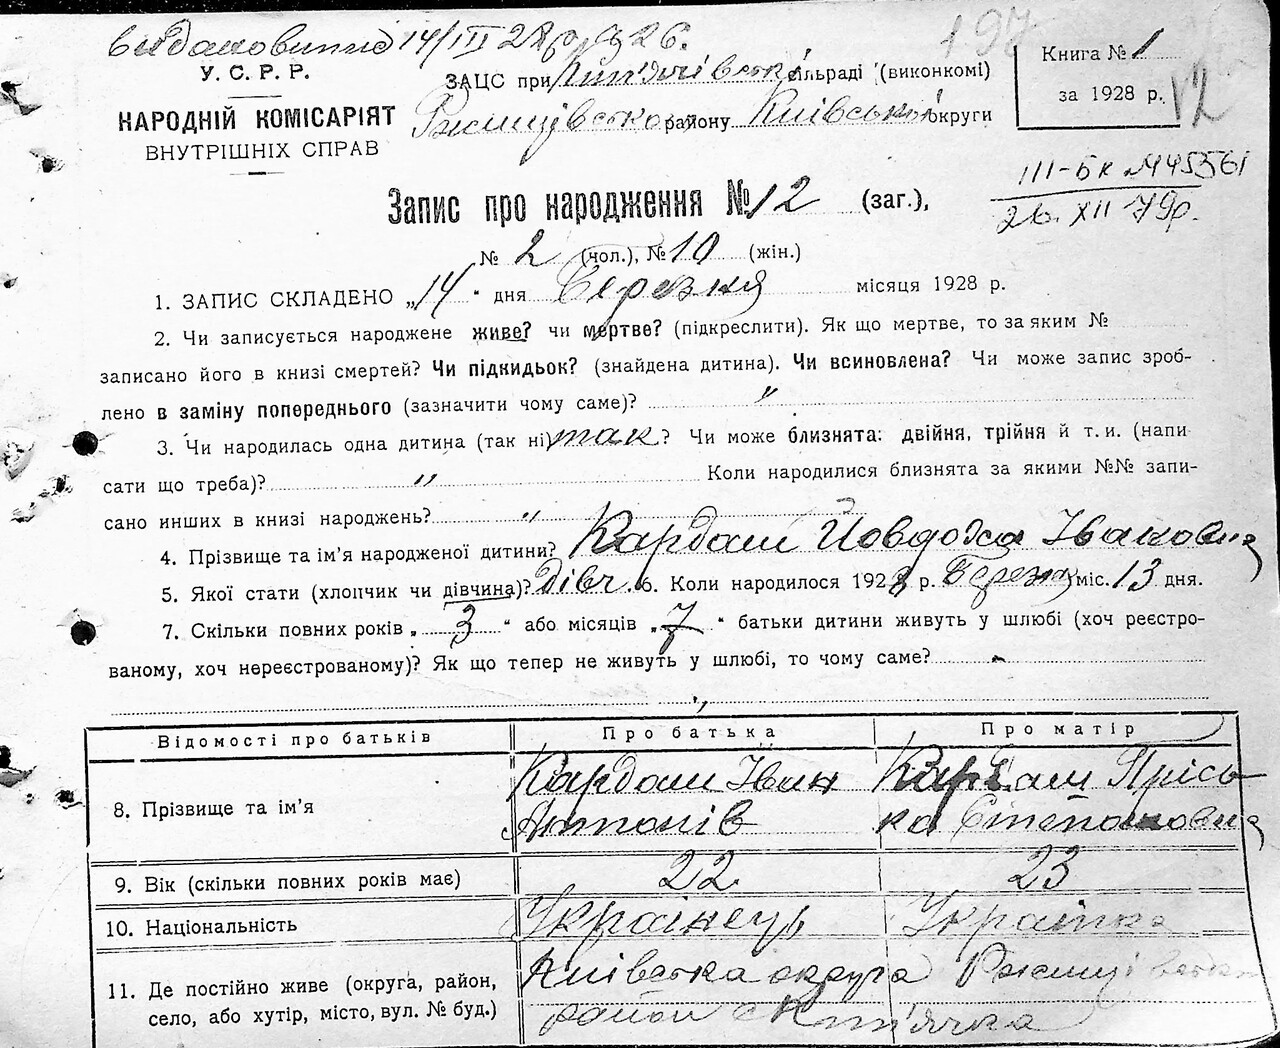 14/III 28 р. № 26.
197
У. С. Р. Р.
НАРОДНІЙ КОМІСАРІЯТ
ВНУТРІШНІХ СПРАВ
ЗАЦС при сільраді (виконкомі)
Ржищівського району Київської округи
Книга № 1
за 1928 р.
12
III-БК № 445361
26. XII 79р.
Запис про народження № 12 (заг.),
№ 2 (чол.), № 10 (жін.)
1. ЗАПИС СКЛАДЕНО „14" дня Березня місяця 1928 р.
2. Чи записується народжене живе? чи мертве? (підкреслити). Як що мертве, то за яким №
записано його в книзі смертей? Чи підкидьок? (знайдена дитина). Чи всиновлена? Чи може запис зроб-
лено в заміну попереднього (зазначити чому саме)? „
3. Чи народилась одна дитина (так ні) так ? Чи може близнята: двійня, трійня й т. и. (напи
сати що треба)? „ Коли народилися близнята за якими №№ запи-
сано инших в книзі народжень? „
4. Прізвище та ім'я народженої дитини? Кардаш Йовдоха Івановна
5. Якої стати (хлопчик чи дівчина)? Дівч. 6. Коли народилося 1928 р. Березня міс. 13 дня.
7. Скільки повних років „ 3 " або місяців „ 7 " батьки дитини живуть у шлюбі (хоч реєстро-
ваному, хоч нереєстрованому)? Як що тепер не живуть у шлюбі, то чому саме? -
„
Відомості про батьків Про батька Про матір
8. Прізвище та ім'я Кардаш Іван Кардаш Прісь-
Антонів ка Степановна
9. Вік (скільки повних років має) 22 23
10. Національність Українець Українка
11. Де постійно живе (округа, район, Київська округа Ржищівський
село, або хутір, місто, вул. № буд.) район с